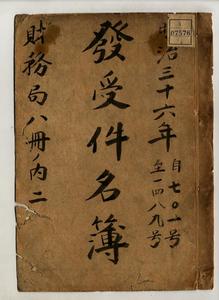 明治三十六年
自七〇一号
至一四八九号
發受件名簿
財務局八冊ノ内二
07576